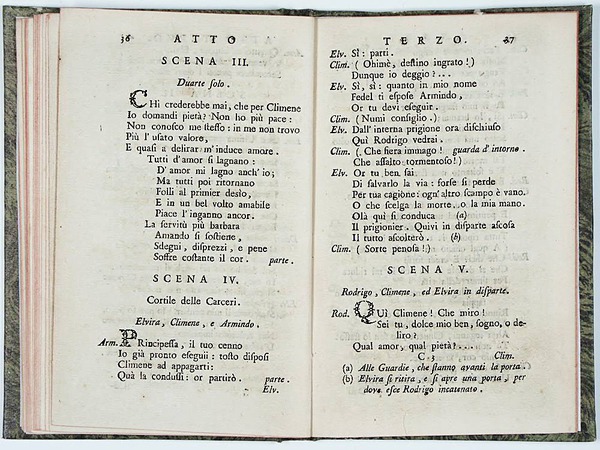 36 ATTO
SCENA III.
Duarte solo.
CHi crederebbe mai, che per Climene
Io domandi pietà? Non ho più pace:
Non conosco me stesso: in me non trovo
Più l'usato valore,
E quasi a delirar m'induce amore.
Tutti d'amor si lagnano:
D'amor mi lagno anch'io;
Ma tutti poi ritornano
Folli al primier desìo,
E in un bel volto amabile
Piace l'inganno ancor.
La servitù più barbara
Amando si sostiene,
Sdegui, disprezzi, e pene
Soffre costante il cor. parte.
SCENA IV.
Cortile delle Carceri.
Elvira, Climene, e Armindo.
Arm. PRincipessa, il tuo cenno
Io già pronto eseguii: tosto disposi
Climene ad appagarti:
Quà la condussi: or partirò. parte.
Elv.
TERZO. 37
Elv. Sì: parti.
Clim. (Ohimè, destino ingrato!)
Dunque io deggio?...
Elv. Sì, sì: quanto in mio nome
Fedel ti espose Armindo,
Or tu devi eseguir.
Clim. (Numi consiglio.)
Elv. Dall'interna prigione ora dischiuso
Quì Rodrigo vedrai.
Clim. (Che fiera immago! guarda d'intorno.
Che assalto tormentoso!)
Elv. Or tu ben sai
Di salvarlo la via: forse si perde
Per tua cagione: ogn'altro scampo è vano.
O che scelga la morte, o la mia mano.
Olà quì si conduca (a)
Il prigionier. Quivi in disparte ascosa
Il tutto ascolterò. (b)
Clim. (Sorte penosa!)
SCENA V.
Rodrigo, Climene, ed Elvira in disparte.
Rod. QUì Climene! Che miro!
Sei tu, dolce mio ben, sogno, o de-
liro?
Qual amor, qual pietà?....
C 3 Clim.
(a) Alle Guardie, che stanno avanti la porta.
(b) Elvira si ritira, e si apre una porta, per
dove esce Rodrigo incatenato.